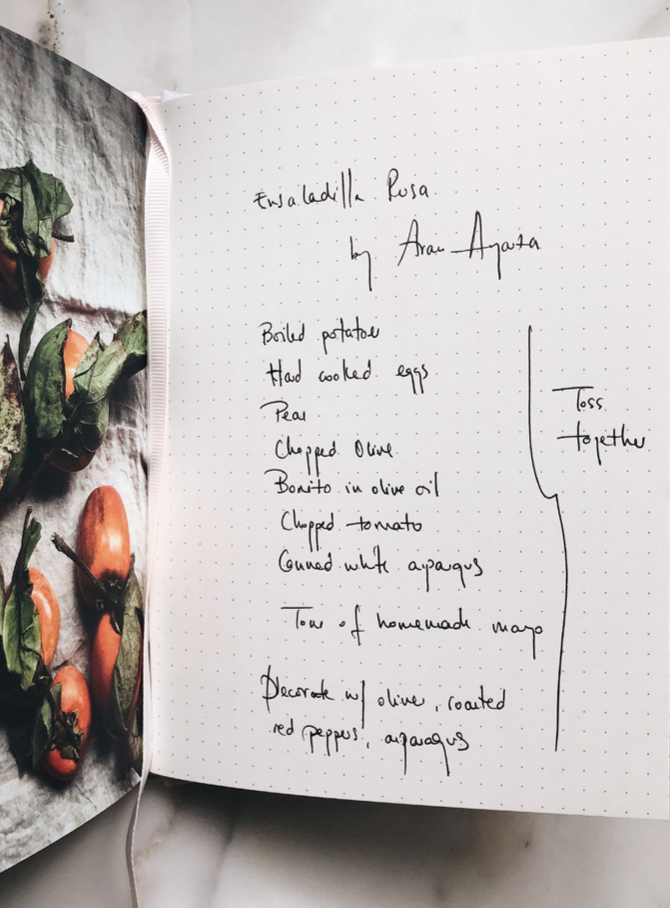 Ensaladilla Rusa
by Aran Goyoaga
Boiled potatoes
Hard cooked eggs
Peas
Chopped Olives
Bonito in olive oil
Chopped tomato
Canned white asparagus
Tons of homemade mayo
Decorate w/ olives, roasted
red peppers, asparagus
Toss
together